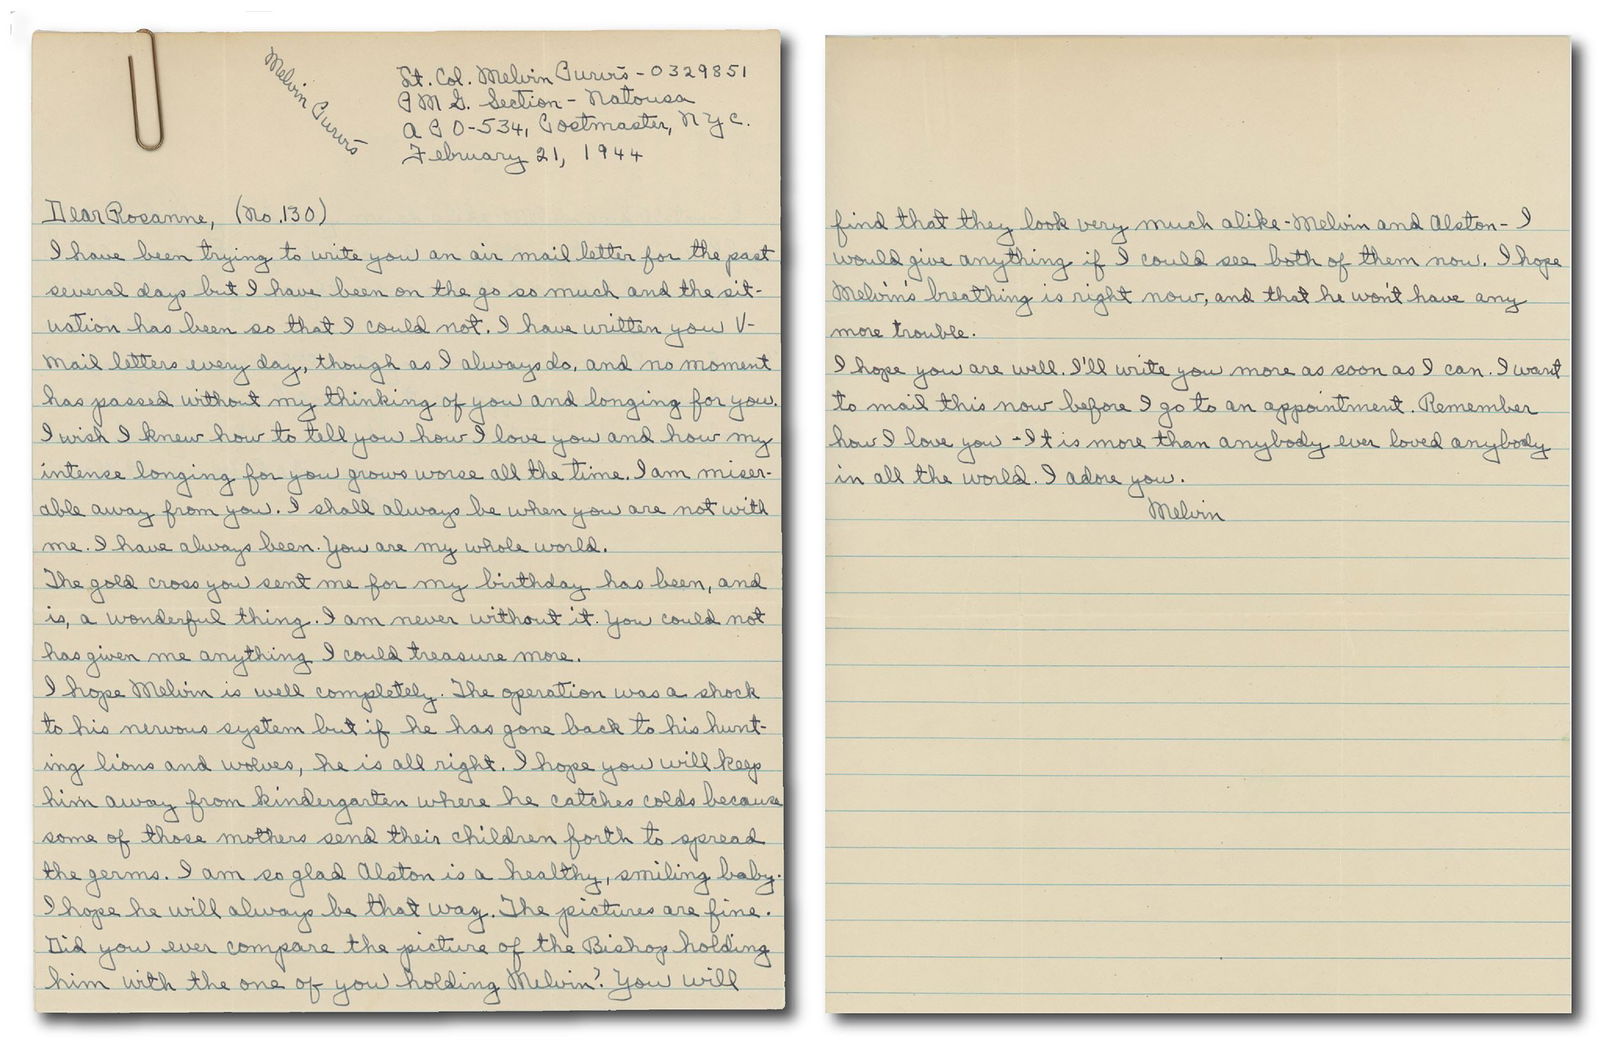 Melvin Purvis
Lt. Col. Melvin Purvis - 0329851
P M G. Section - Natousa
A P O - 534, Postmaster, N Y C.
February 21, 1944
Dear Rosanne, (No. 130)
I have been trying to write you an air mail letter for the past
several days but I have been on the go so much and the sit-
uation has been so that I could not. I have written you V-
mail letters every day, though as I always do, and no moment
has passed without my thinking of you and longing for you.
I wish I knew how to tell you how I love you and how my
intense longing for you grows worse all the time. I am miser-
able away from you. I shall always be when you are not with
me. I have always been. You are my whole world.
The gold cross you sent me for my birthday has been, and
is, a wonderful thing. I am never without it. You could not
has given me anything I could treasure more.
I hope Melvin is well completely. The operation was a shock
to his nervous system but if he has gone back to his hunt-
ing lions and wolves, he is all right. I hope you will keep
him away from kindergarten where he catches colds because
some of those mothers send their children forth to spread
the germs. I am so glad Alston is a healthy, smiling baby.
I hope he will always be that way. The pictures are fine.
Did you ever compare the picture of the Bishop holding
him with the one of you holding Melvin? You will
find that they look very much alike - Melvin and Alston - I
would give anything if I could see both of them now. I hope
Melvin's breathing is right now, and that he won't have any
more trouble.
I hope you are well. I'll write you more as soon as I can. I want
to mail this now before I go to an appointment. Remember
how I love you - It is more than anybody ever loved anybody
in all the world. I adore you.
Melvin